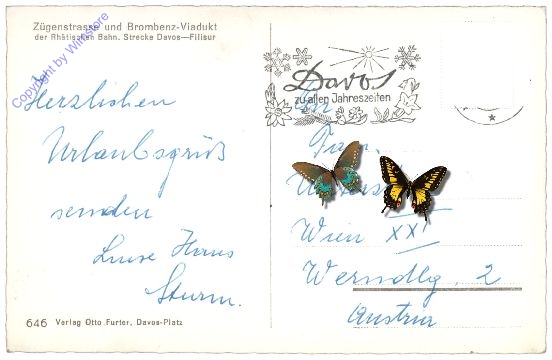 Zügenstrasse und Brombenz-Viadukt
der Rhätischen Bahn. Strecke Davos—Filisur
Copyright by Winstore
Herzlichen
Urlaubsgrüß
senden
Luise Hans
Sturm.
646 Verlag Otto Furter, Davos-Platz
Davos
zu allen Jahreszeiten
An
Fam.
Wien XXI
2
Austria